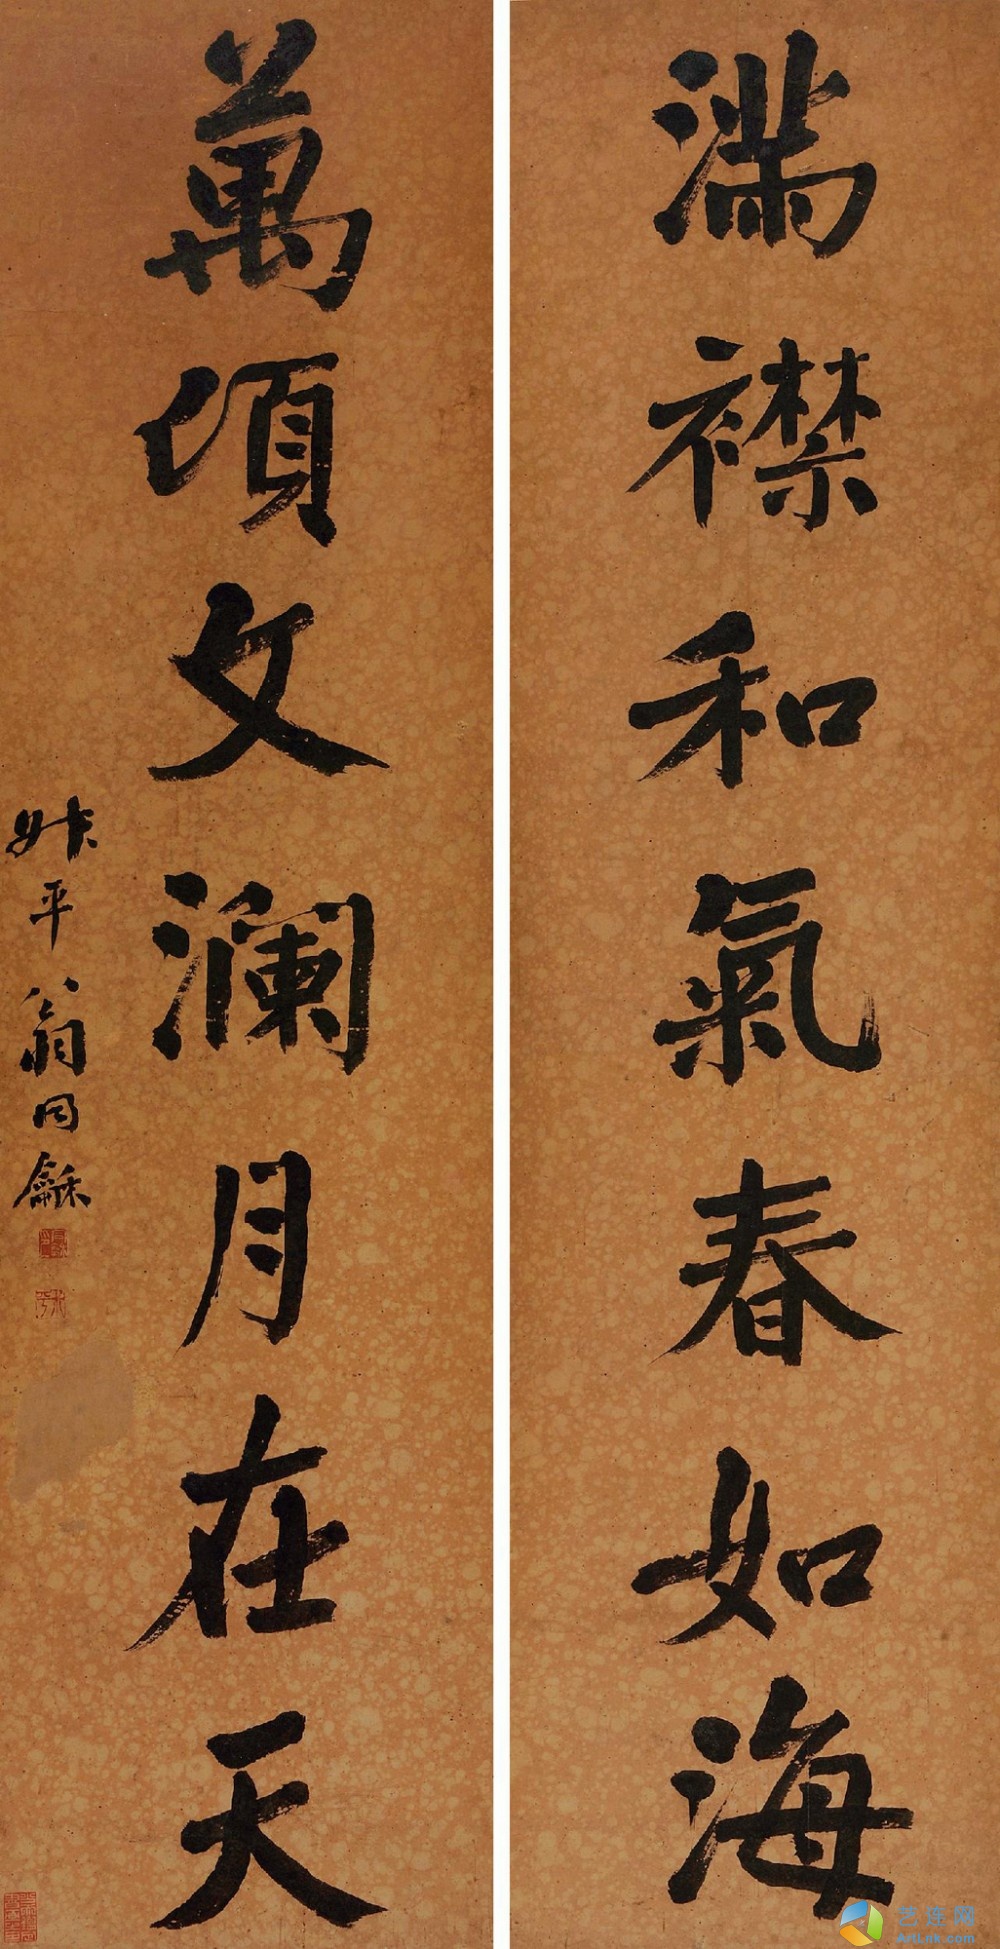 滿襟和氣春如海
萬頃文瀾月在天
叔平翁同龢
艺连网
ArtLnk.com